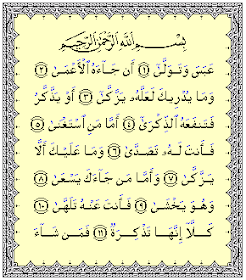 بِسْمِ اللَّهِ الرَّحْمَٰنِ الرَّحِيمِ
عَبَسَ وَتَوَلَّىٰٓ ١ أَن جَآءَهُ ٱلْأَعْمَىٰ ٢
وَمَا يُدْرِيكَ لَعَلَّهُۥ يَزَّكَّىٰٓ ٣ أَوْ يَذَّكَّرُ
فَتَنفَعَهُ ٱلذِّكْرَىٰٓ ٤ أَمَّا مَنِ ٱسْتَغْنَىٰ ٥
فَأَنتَ لَهُۥ تَصَدَّىٰ ٦ وَمَا عَلَيْكَ أَلَّا
يَزَّكَّىٰ ٧ وَأَمَّا مَن جَآءَكَ يَسْعَىٰ ٨
وَهُوَ يَخْشَىٰ ٩ فَأَنتَ عَنْهُ تَلَهَّىٰ ١٠
كَلَّآ إِنَّهَا تَذْكِرَةٌ ١١ فَمَن شَآءَ